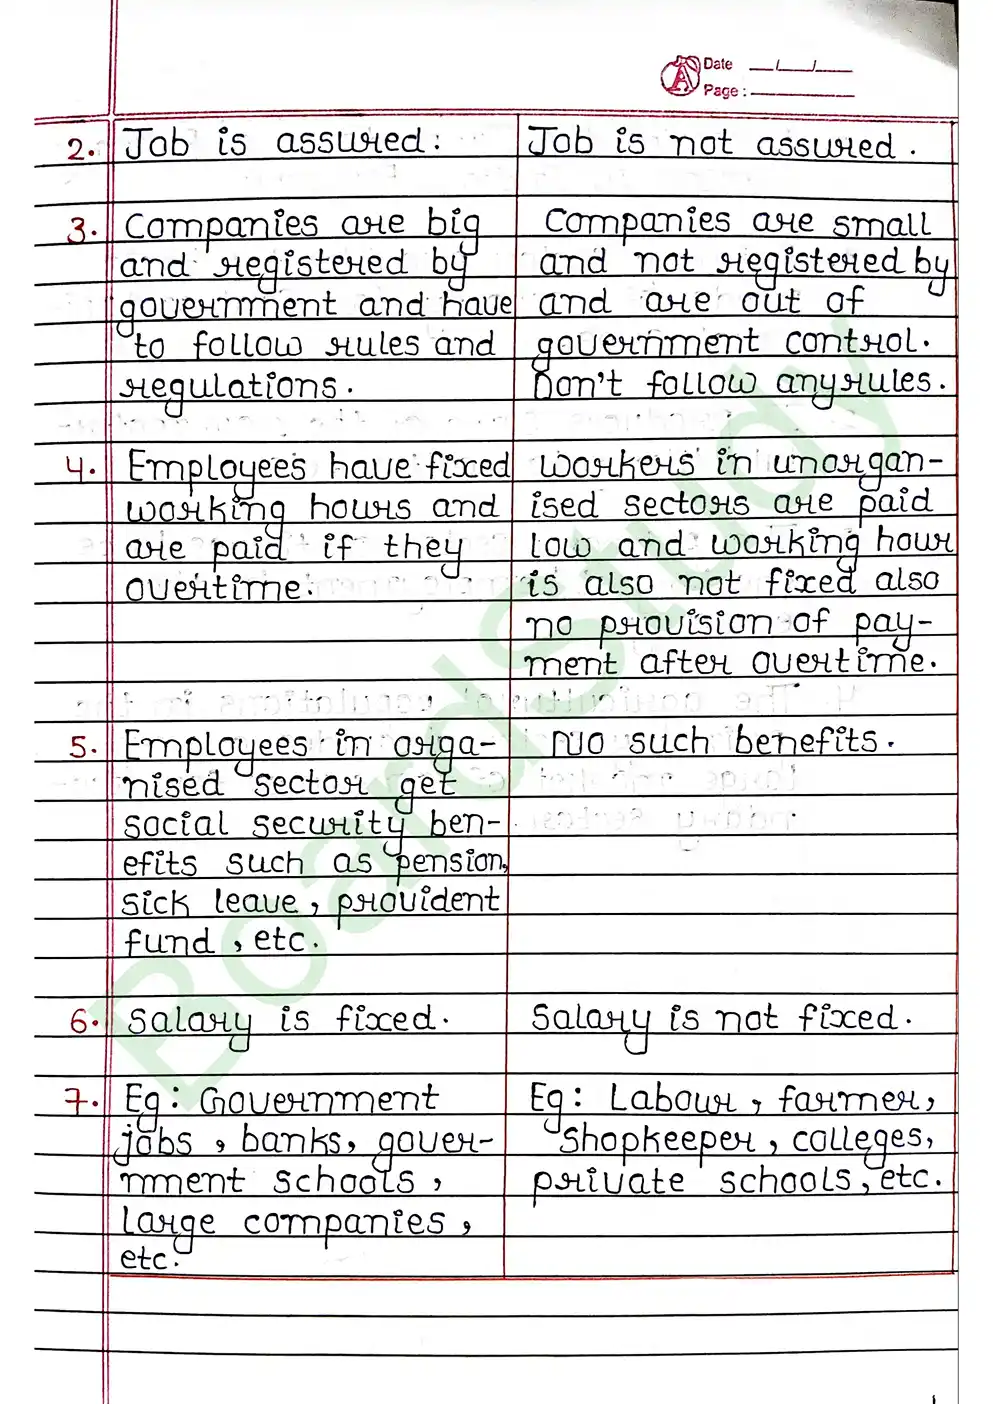 Date __/__/__
Page : ________
2. Job is assured :
Job is not assured .
3. Companies are big
and registered by
government and have
to follow rules and
regulations .
Companies are small
and not registered by
and are out of
government control .
Don't follow any rules .
4. Employees have fixed
working hours and
are paid if they
overtime .
Workers in unorgan-
ised sectors are paid
low and working hour
is also not fixed also
no provision of pay-
ment after overtime .
5. Employees in orga-
nised sector get
social security ben-
efits such as pension,
sick leave , provident
fund , etc .
No such benefits .
6. Salary is fixed .
Salary is not fixed .
7. Eg : Government
jobs , banks, gover-
nment schools ,
large companies ,
etc .
Eg : Labour , farmer ,
shopkeeper , colleges,
private schools , etc .
BoardStudy